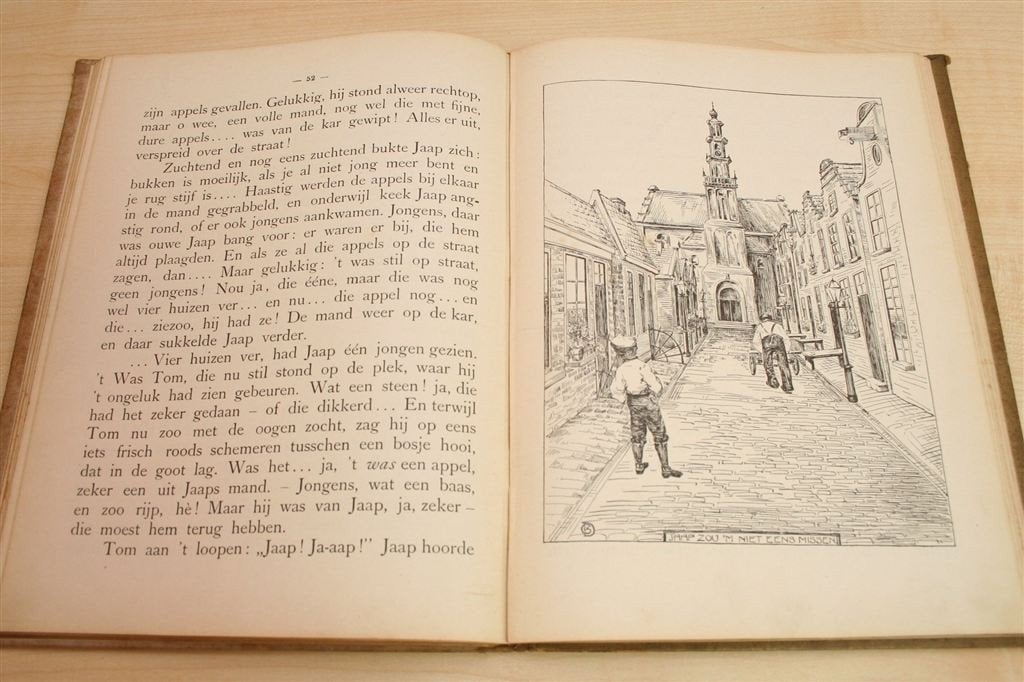 — 52 —
zijn appels gevallen. Gelukkig, hij stond alweer rechtop,
maar o wee, een volle mand, nog wel die met fijne,
dure appels.... was van de kar gewipt! Alles er uit,
verspreid over de straat!
Zuchtend en nog eens zuchtend bukte Jaap zich:
bukken is moeilijk, als je al niet jong meer bent en
je rug stijf is.... Haastig werden de appels bij elkaar
in de mand gegrabbeld, en onderwijl keek Jaap ang-
stig rond, of er ook jongens aankwamen. Jongens, daar
was ouwe Jaap bang voor: er waren er bij, die hem
altijd plaagden. En als ze al die appels op de straat
zagen, dan.... Maar gelukkig: 't was stil op straat,
geen jongens! Nou ja, die ééne, maar die was nog
wel vier huizen ver... en nu... die appel nog... en
die... ziezoo, hij had ze! De mand weer op de kar,
en daar sukkelde Jaap verder.
... Vier huizen ver, had Jaap één jongen gezien.
't Was Tom, die nu stil stond op de plek, waar hij
't ongeluk had zien gebeuren. Wat een steen! ja, die
had het zeker gedaan – of die dikkerd... En terwijl
Tom nu zoo met de oogen zocht, zag hij op eens
iets frisch roods schemeren tusschen een bosje hooi,
dat in de goot lag. Was het... ja, 't was een appel,
zeker een uit Jaaps mand. – Jongens, wat een baas,
en zoo rijp, hè! Maar hij was van Jaap, ja, zeker –
die moest hem terug hebben.
Tom aan 't loopen: „Jaap! Ja-aap!” Jaap hoorde
JAAP ZOU 'M NIET EENS MISSEN